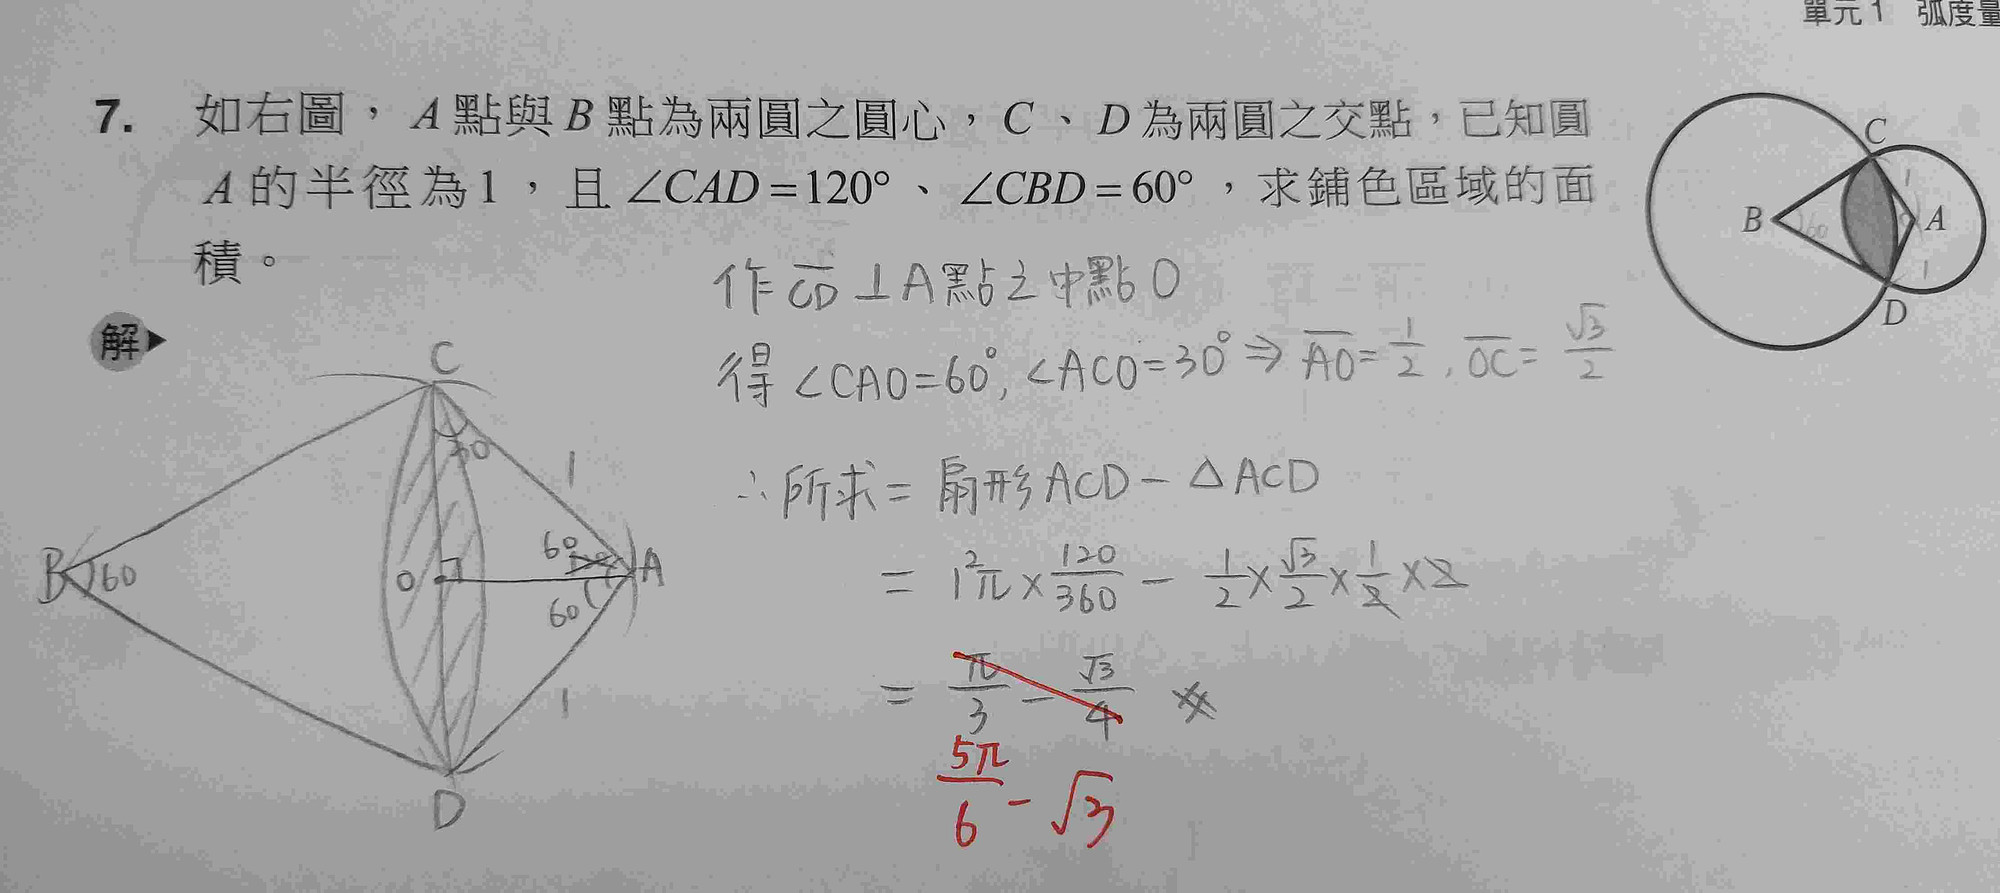 單元1 弧度量
7. 如右圖，A點與B點為兩圓之圓心，C、D為兩圓之交點，已知圓
A的半徑為1，且∠CAD=120°、∠CBD=60°，求鋪色區域的面
積。
C
1
B
60
A
1
D
解
作 \overline{CD} ⊥ A點之中點O
得 ∠CAO=60°, ∠ACO=30° ⇒ \overline{AO}=\frac{1}{2}, \overline{OC}=\frac{√3}{2}
∴ 所求 = 扇形ACD - △ACD
= 1²π × \frac{120}{360} - \frac{1}{2} × \frac{√3}{2} × \frac{1}{2} × 2
= \frac{π}{3} - \frac{√3}{4}
\frac{5π}{6} - √3
C
30
1
B
60
O
60
60
A
1
D